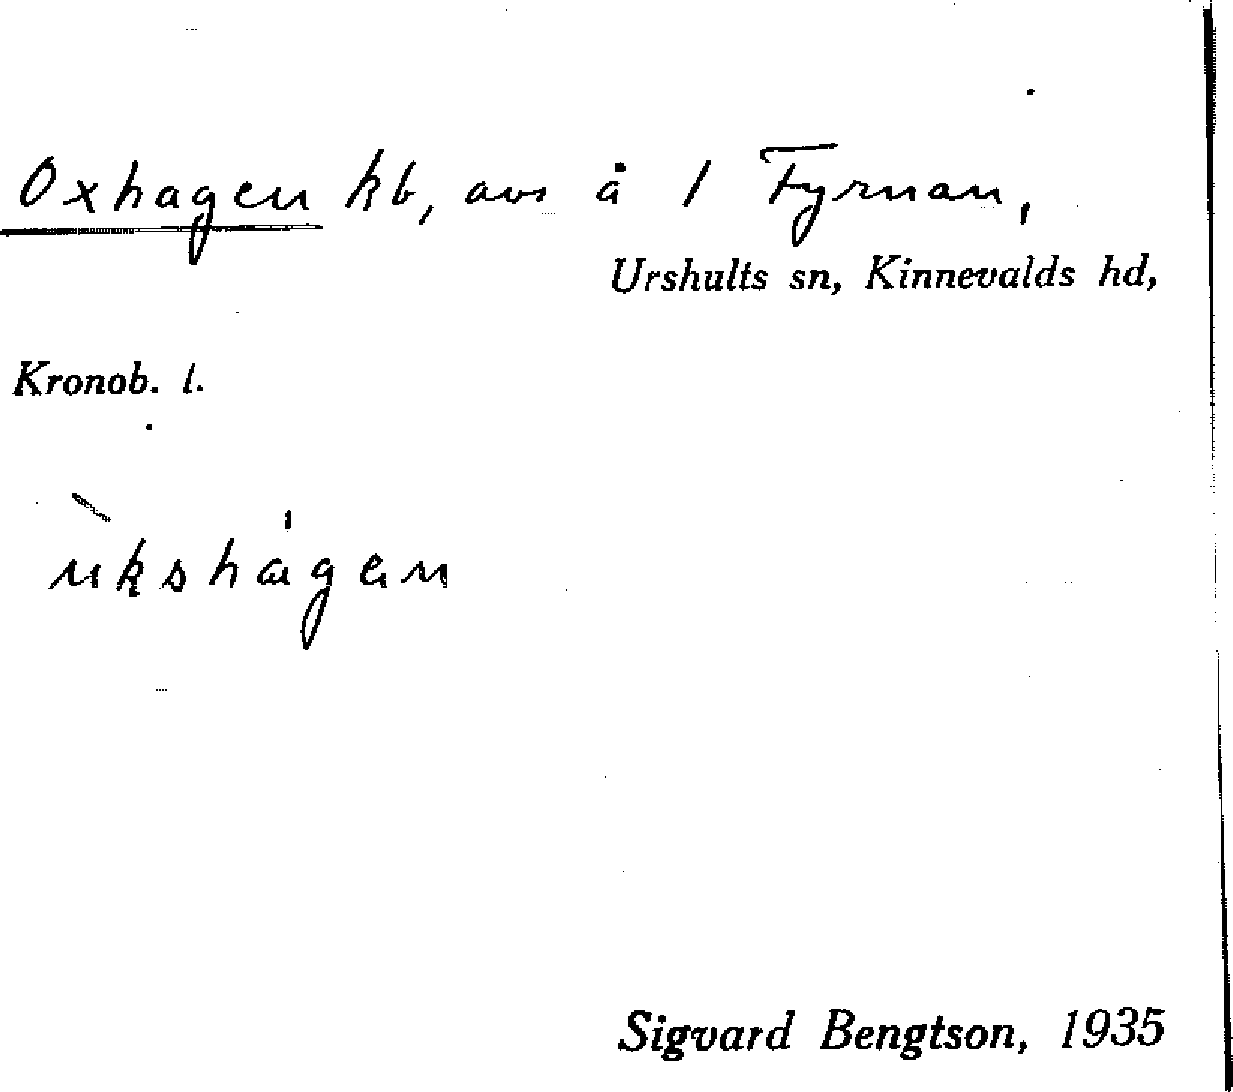 Oxhagen kb, avs å 1 Fyrnan,
Urshults sn, Kinnevalds hd,
Kronob. l.
ùkshágen
Sigvard Bengtson, 1935